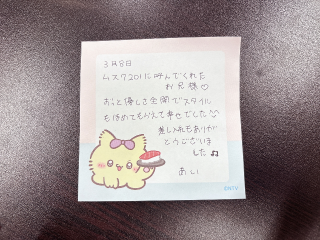 3月8日
ムスク201に呼んでくれた
お兄様♡
おっと優しさ全開でスタイル
も褒めてもらえて幸せでした
差し入れもありが
とうございま
した♫
あい
©NTV